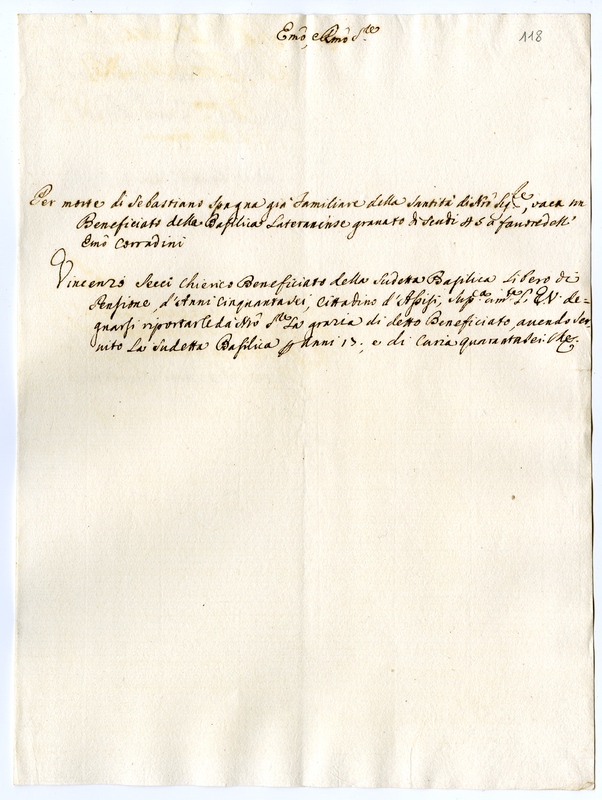 Emõ, e Rmõ Sre
118
Per morte di Sebastiano Spagna già familiare della Santità di Nrõ Sigre, vaca un
Beneficiato della Basilica Lateranense gravato di scudi 45 à favore dell'
Emõ Corradini
Vincenzo Secci Chierico Beneficiato della Sudetta Basilica Libero di
Pensione, d'Anni Cinquantasei, Cittadino d'Assisi, Suppca L'E.V. de=
gnarsi riportarle da Nrõ Sre La grazia di detto Beneficiato, avendo ser,
vito La Sudetta Basilica p anni 13; e di Curia quarantasei. Che